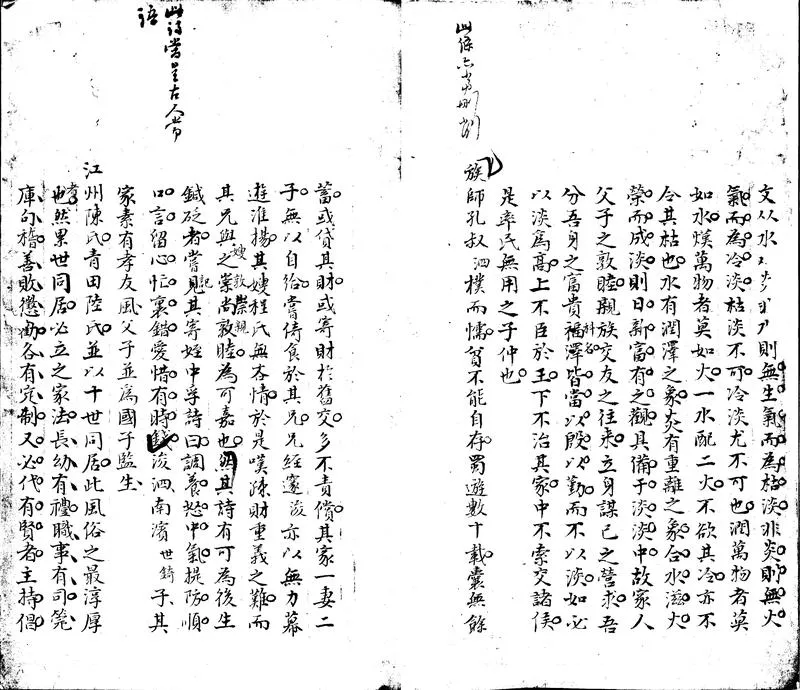 此條亦當刪削
文从水則無生氣而為枯淡非炎則無火
氣而為冷淡枯淡不可冷淡尤不可也潤萬物者莫
如水熯萬物者莫如火一水配二火不欲其冷亦不
令其枯也水有潤澤之象炎有重離之象合水滋火
榮而成淡則日新富有之觀具備于淡淡中故家人
父子之敦睦親族交友之往來立身謀己之營求吾
分吾身之富貴福澤皆當以殷以勤而不以淡如必
以淡爲高上不臣於王下不治其家中不索交諸侯
是率民無用之子仲也
族師孔叔泗樸而懦貧不能自存蜀遊數十載囊無餘
此詩當是古人常
語
蓄或貸其財或寄財於舊交多不責償其家一妻二
子無以自給嘗倚食於其兄兄經邃浚亦以無力幕
遊淮揚其嫂程氏無吝情於是嘆疎財重義之難而
其兄與嫂之敦崇尚敦睦為可嘉也其詩有可為後生
鍼砭者嘗見其寄姪中孚詩曰調養怒中氣提防順
口言留心忙裏錯愛惜有時錢浚泗南濱世錡子其
家素有孝友風父子並爲國子監生
江州陳氏青田陸氏並以十世同居此風俗之最淳厚
也然累世同居必立之家法長幼有禮職事有司筦
庫句稽善敗懲勸各有定制又必代有賢者主持倡